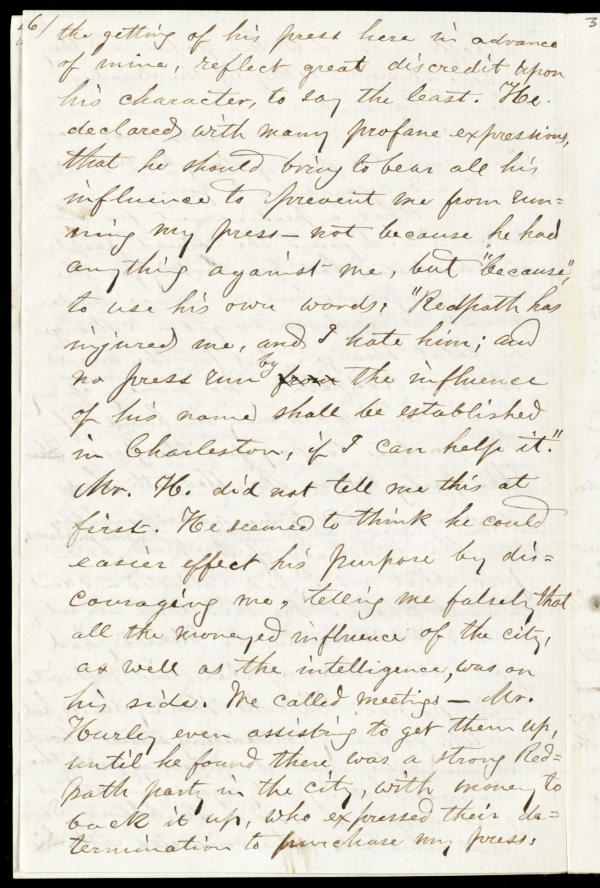 6/
3
the getting of his press here in advance
of mine, reflect great discredit upon
his character, to say the least. He
declared with many profane expressions,
that he should bring to bear all his
influence to prevent me from run=
ning my press — not because he had
anything against me, but "because",
to use his own words; "Redpath has
injured me, and I hate him; and
no press run by from the influence
of his name shall be established
in Charleston, if I can help it."
Mr. H. did not tell me this at
first. He seemed to think he could
easier effect his purpose by dis=
couraging me, telling me falsely that
all the moneyed influence of the city,
as well as the intelligence, was on
his side. We called meetings — Mr.
Hurley even assisting to get them up,
until he found there was a strong Red=
path party in the city, with money to
back it up, who expressed their de=
termination to purchase my press.